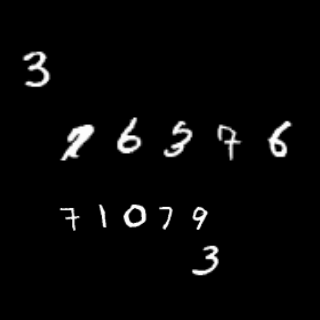 3
6 5 7 6
7 1 0 7 9
3